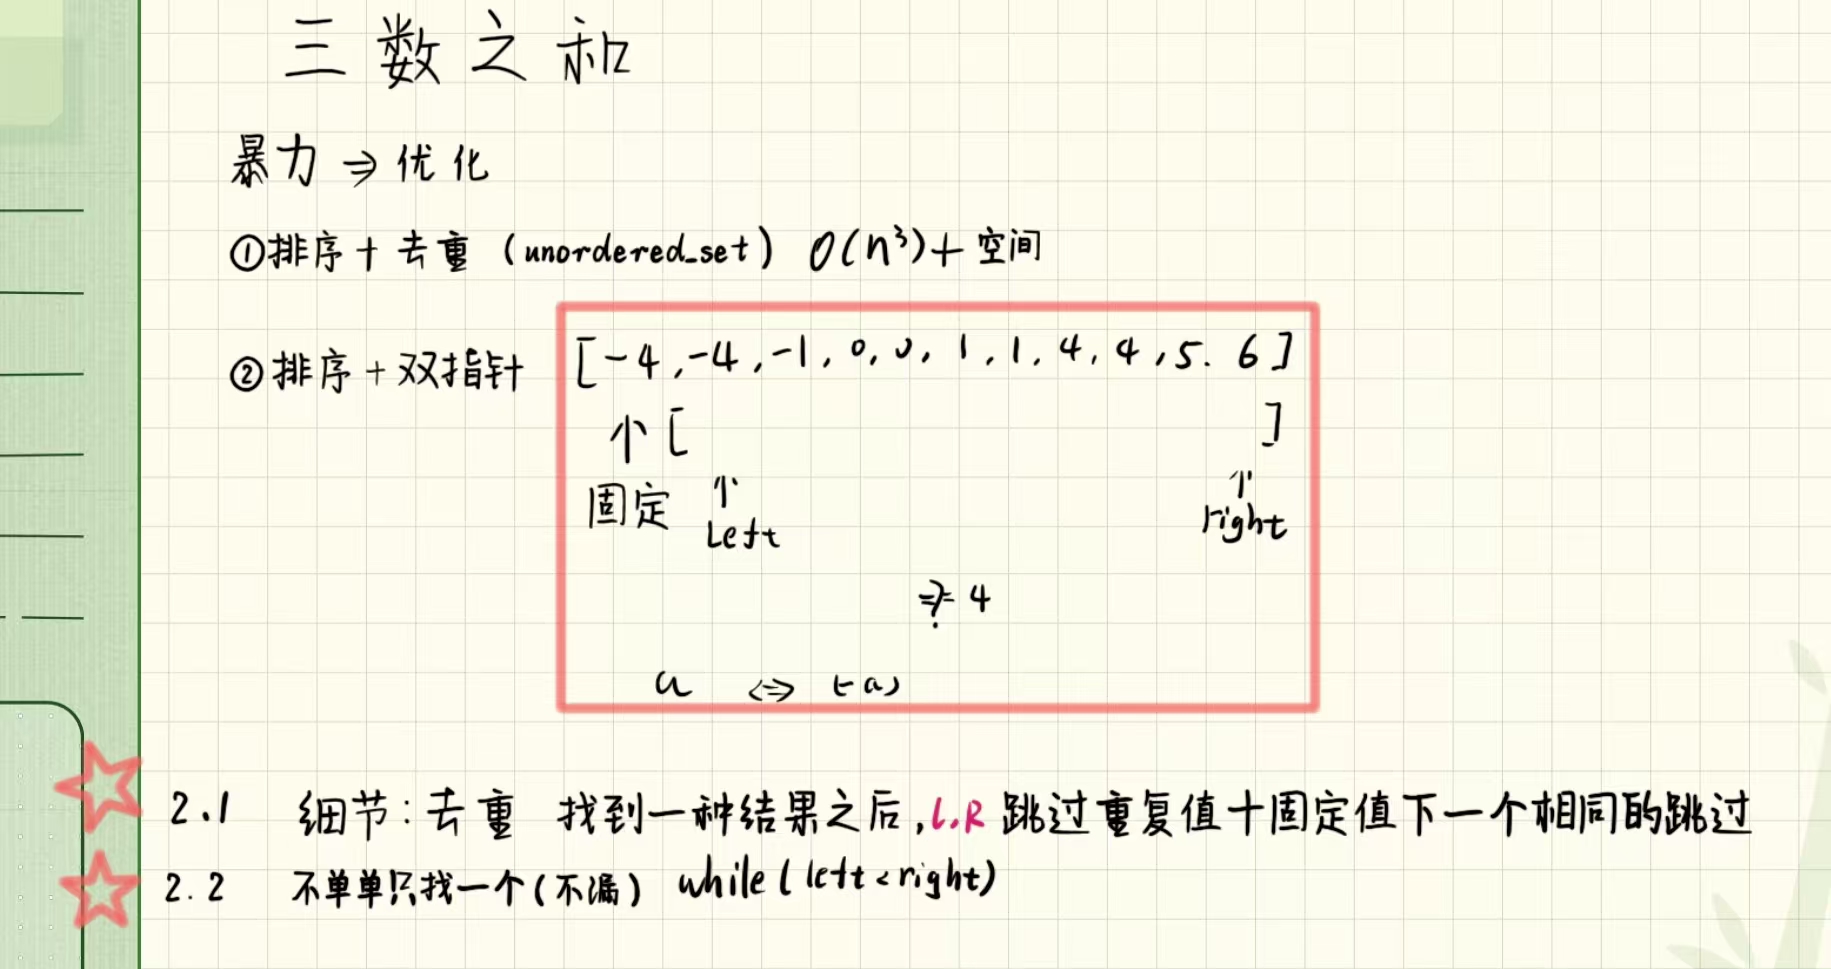 三数之和
暴力 => 优化
①排序+去重 (unordered_set) O(n³)+空间
②排序+双指针
[-4,-4,-1,0,0,1,1,4,4,5.6]
个[ ]
固定 ↑ ↑
Left right
=?= 4
a <=> (-a)
2.1 细节:去重 找到一种结果之后,L.R 跳过重复值+固定值下一个相同的跳过
2.2 不单单只找一个(不漏) while(left<right)